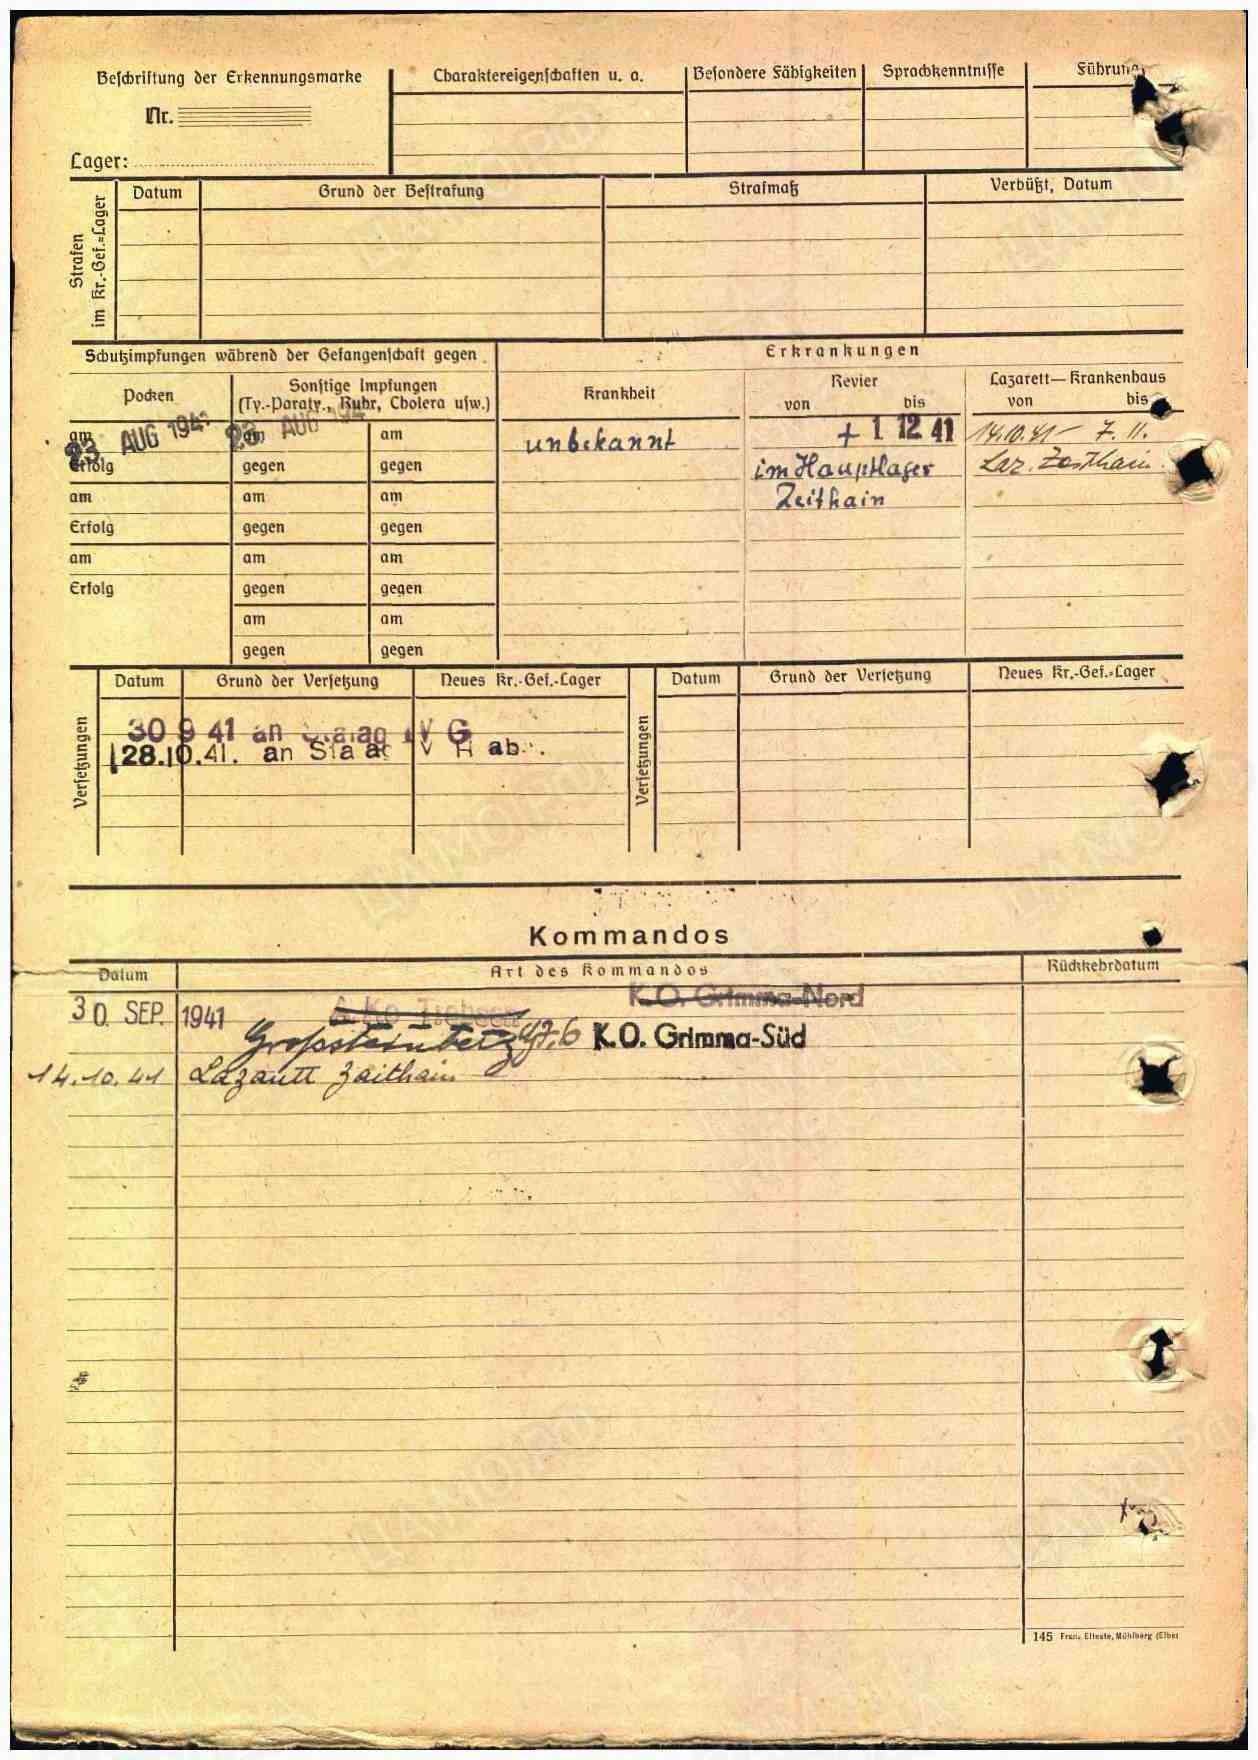 Beschriftung der Erkennungsmarke
Nr.
Lager:
Charaktereigenschaften u. a.
Besondere Fähigkeiten
Sprachkenntnisse
Führung
Strafen im Kr.-Gef.=Lager
Datum
Grund der Bestrafung
Strafmaß
Verbüßt, Datum
Schutzimpfungen während der Gefangenschaft gegen
Erkrankungen
Pocken
Sonstige Impfungen
(Ty.-Paraty., Ruhr, Cholera usw.)
Krankheit
Revier
von bis
Lazarett—Krankenhaus
von bis
23. AUG 1941
23. AUG 194
am am am
Erfolg gegen gegen
am am am
Erfolg gegen gegen
am am am
Erfolg gegen gegen
am am
gegen gegen
unbekannt
+ 1. 12. 41
im Hauptlager
Zeithain
14.10.41 - 7. 11.
Laz. Zeithain
Versetzungen
Datum
Grund der Versetzung
Neues Kr.-Gef.-Lager
Versetzungen
Datum
Grund der Versetzung
Neues Kr.-Gef.=Lager
30 9 41 an Stalag IV G
28.10.41. an Sta ag V H ab.
Kommandos
Datum
Art des Kommandos
Rückkehrdatum
30. SEP. 1941
A.Ko
K.O. Grimma-Nord
Grossteinberg
K.O. Grimma-Süd
14.10.41 Lazarett Zeithain
145 Franz Elteste, Mühlberg (Elbe)
ЦАМО РФ